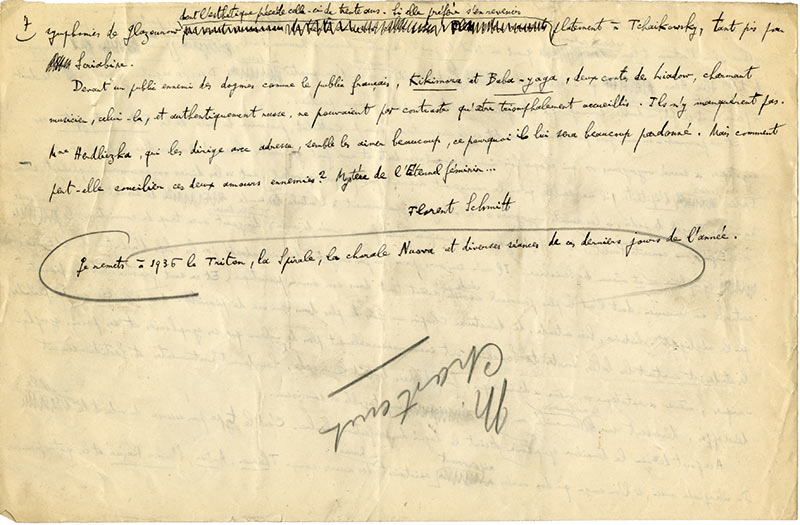 7
dont l'esthétique précède celle-ci de trente ans. Si elle préfère s'en revenir
symphonies de Glazounow platement à Tchaïkowsky, tant pis pour
Scriabine.
Devant un public ennemi des dogmes comme le public français, Kikimora et Baba-yaga, deux contes de Liadow, charmant
musicien, celui-là, et authentiquement russe, ne pouvaient par contraste qu'être triomphalement accueillis. Ils n'y manquèrent pas.
Mme qui les dirige avec adresse, semble les aimer beaucoup, ce pourquoi il lui sera beaucoup pardonné. Mais comment
peut-elle concilier ces deux amours ennemies? Mystère de l'Eternel féminin...
Florent Schmitt
Je remets à 1936 le Triton, la Spirale, la chorale Nuova et diverses séances de ces derniers jours de l'année.
M.